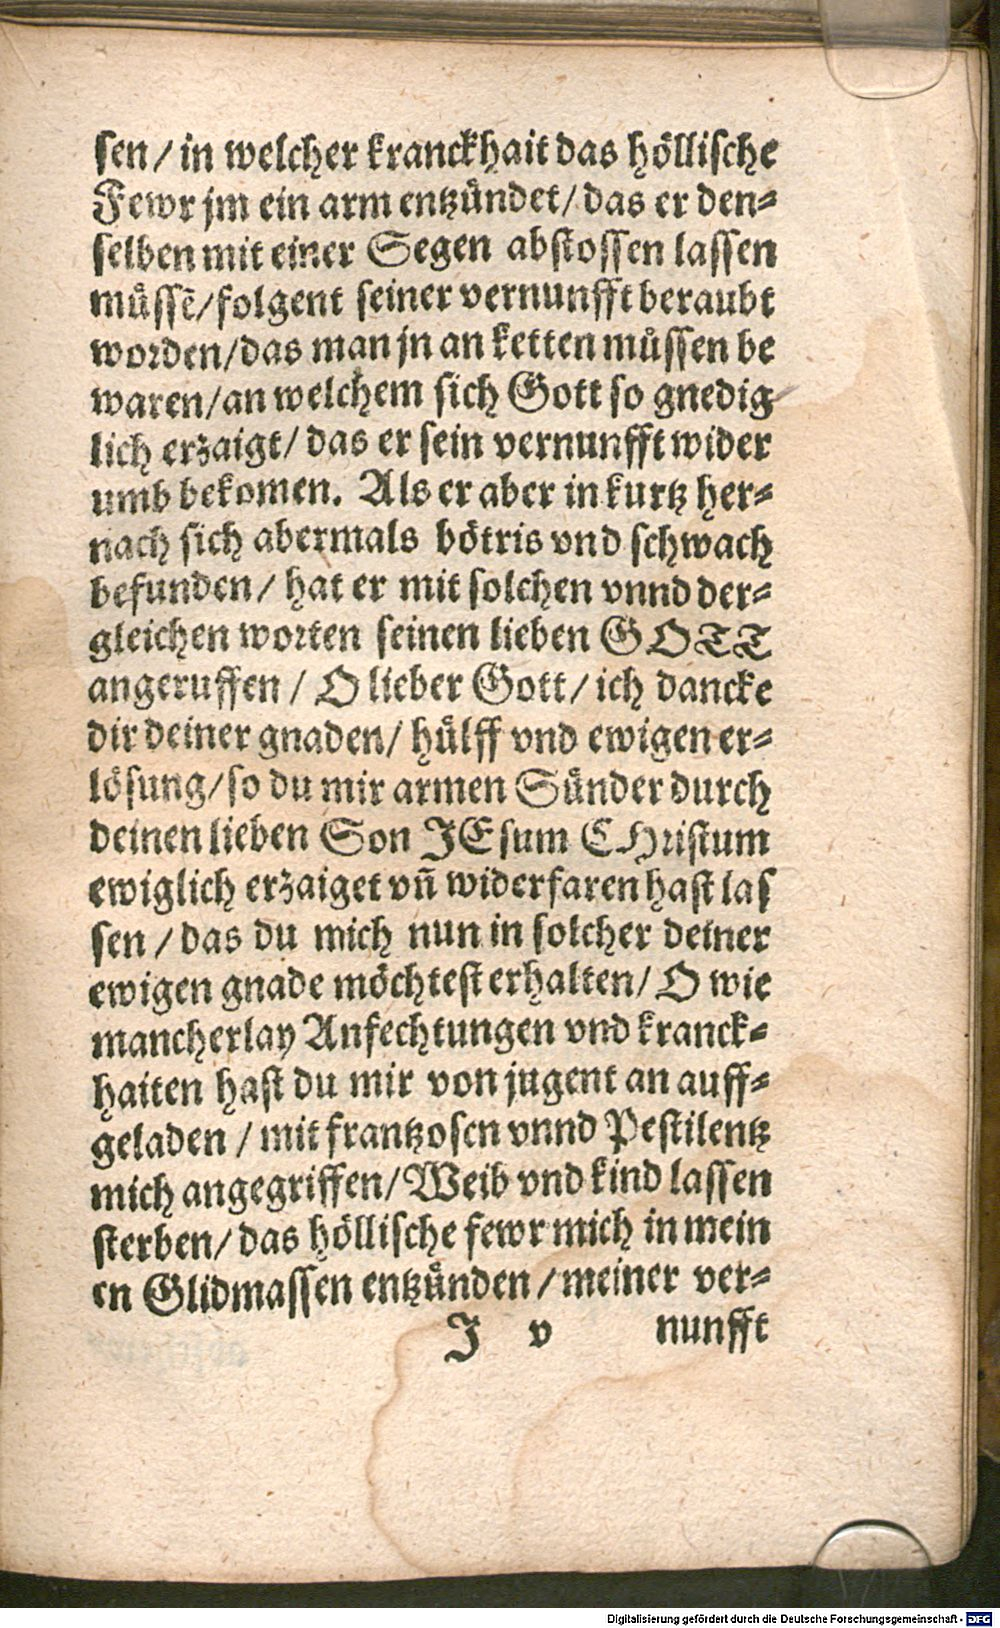 sen/ in welcher kranckhait das höllische
Fewr jm ein arm entzündet/ das er den⸗
selben mit einer Segen abstossen lassen
müssē/ folgent seiner vernunfft beraubt
worden/ das man jn an ketten müssen be
waren/ an welchem sich Gott so gnedig
lich erzaigt/ das er sein vernunfft wider
umb bekomen. Als er aber in kurtz her⸗
nach sich abermals bötris vnd schwach
befunden/ hat er mit solchen vnnd der⸗
gleichen worten seinen lieben GOTT
angeruffen/ O lieber Gott/ ich dancke
dir deiner gnaden/ hülff vnd ewigen er⸗
lösung/ so du mir armen Sünder durch
deinen lieben Son JEsum CHristum
ewiglich erzaiget vn̄ widerfaren hast las
sen/ das du mich nun in solcher deiner
ewigen gnade möchtest erhalten/ O wie
mancherlay Anfechtungen vnd kranck⸗
haiten hast du mir von jugent an auff⸗
geladen/ mit frantzosen vnnd Pestilentz
mich angegriffen/ Weib vnd kind lassen
sterben/ das höllische fewr mich in mein
en Glidmassen entzünden/ meiner ver⸗
J v nunfft
Digitalisierung gefördert durch die Deutsche Forschungsgemeinschaft - DFG